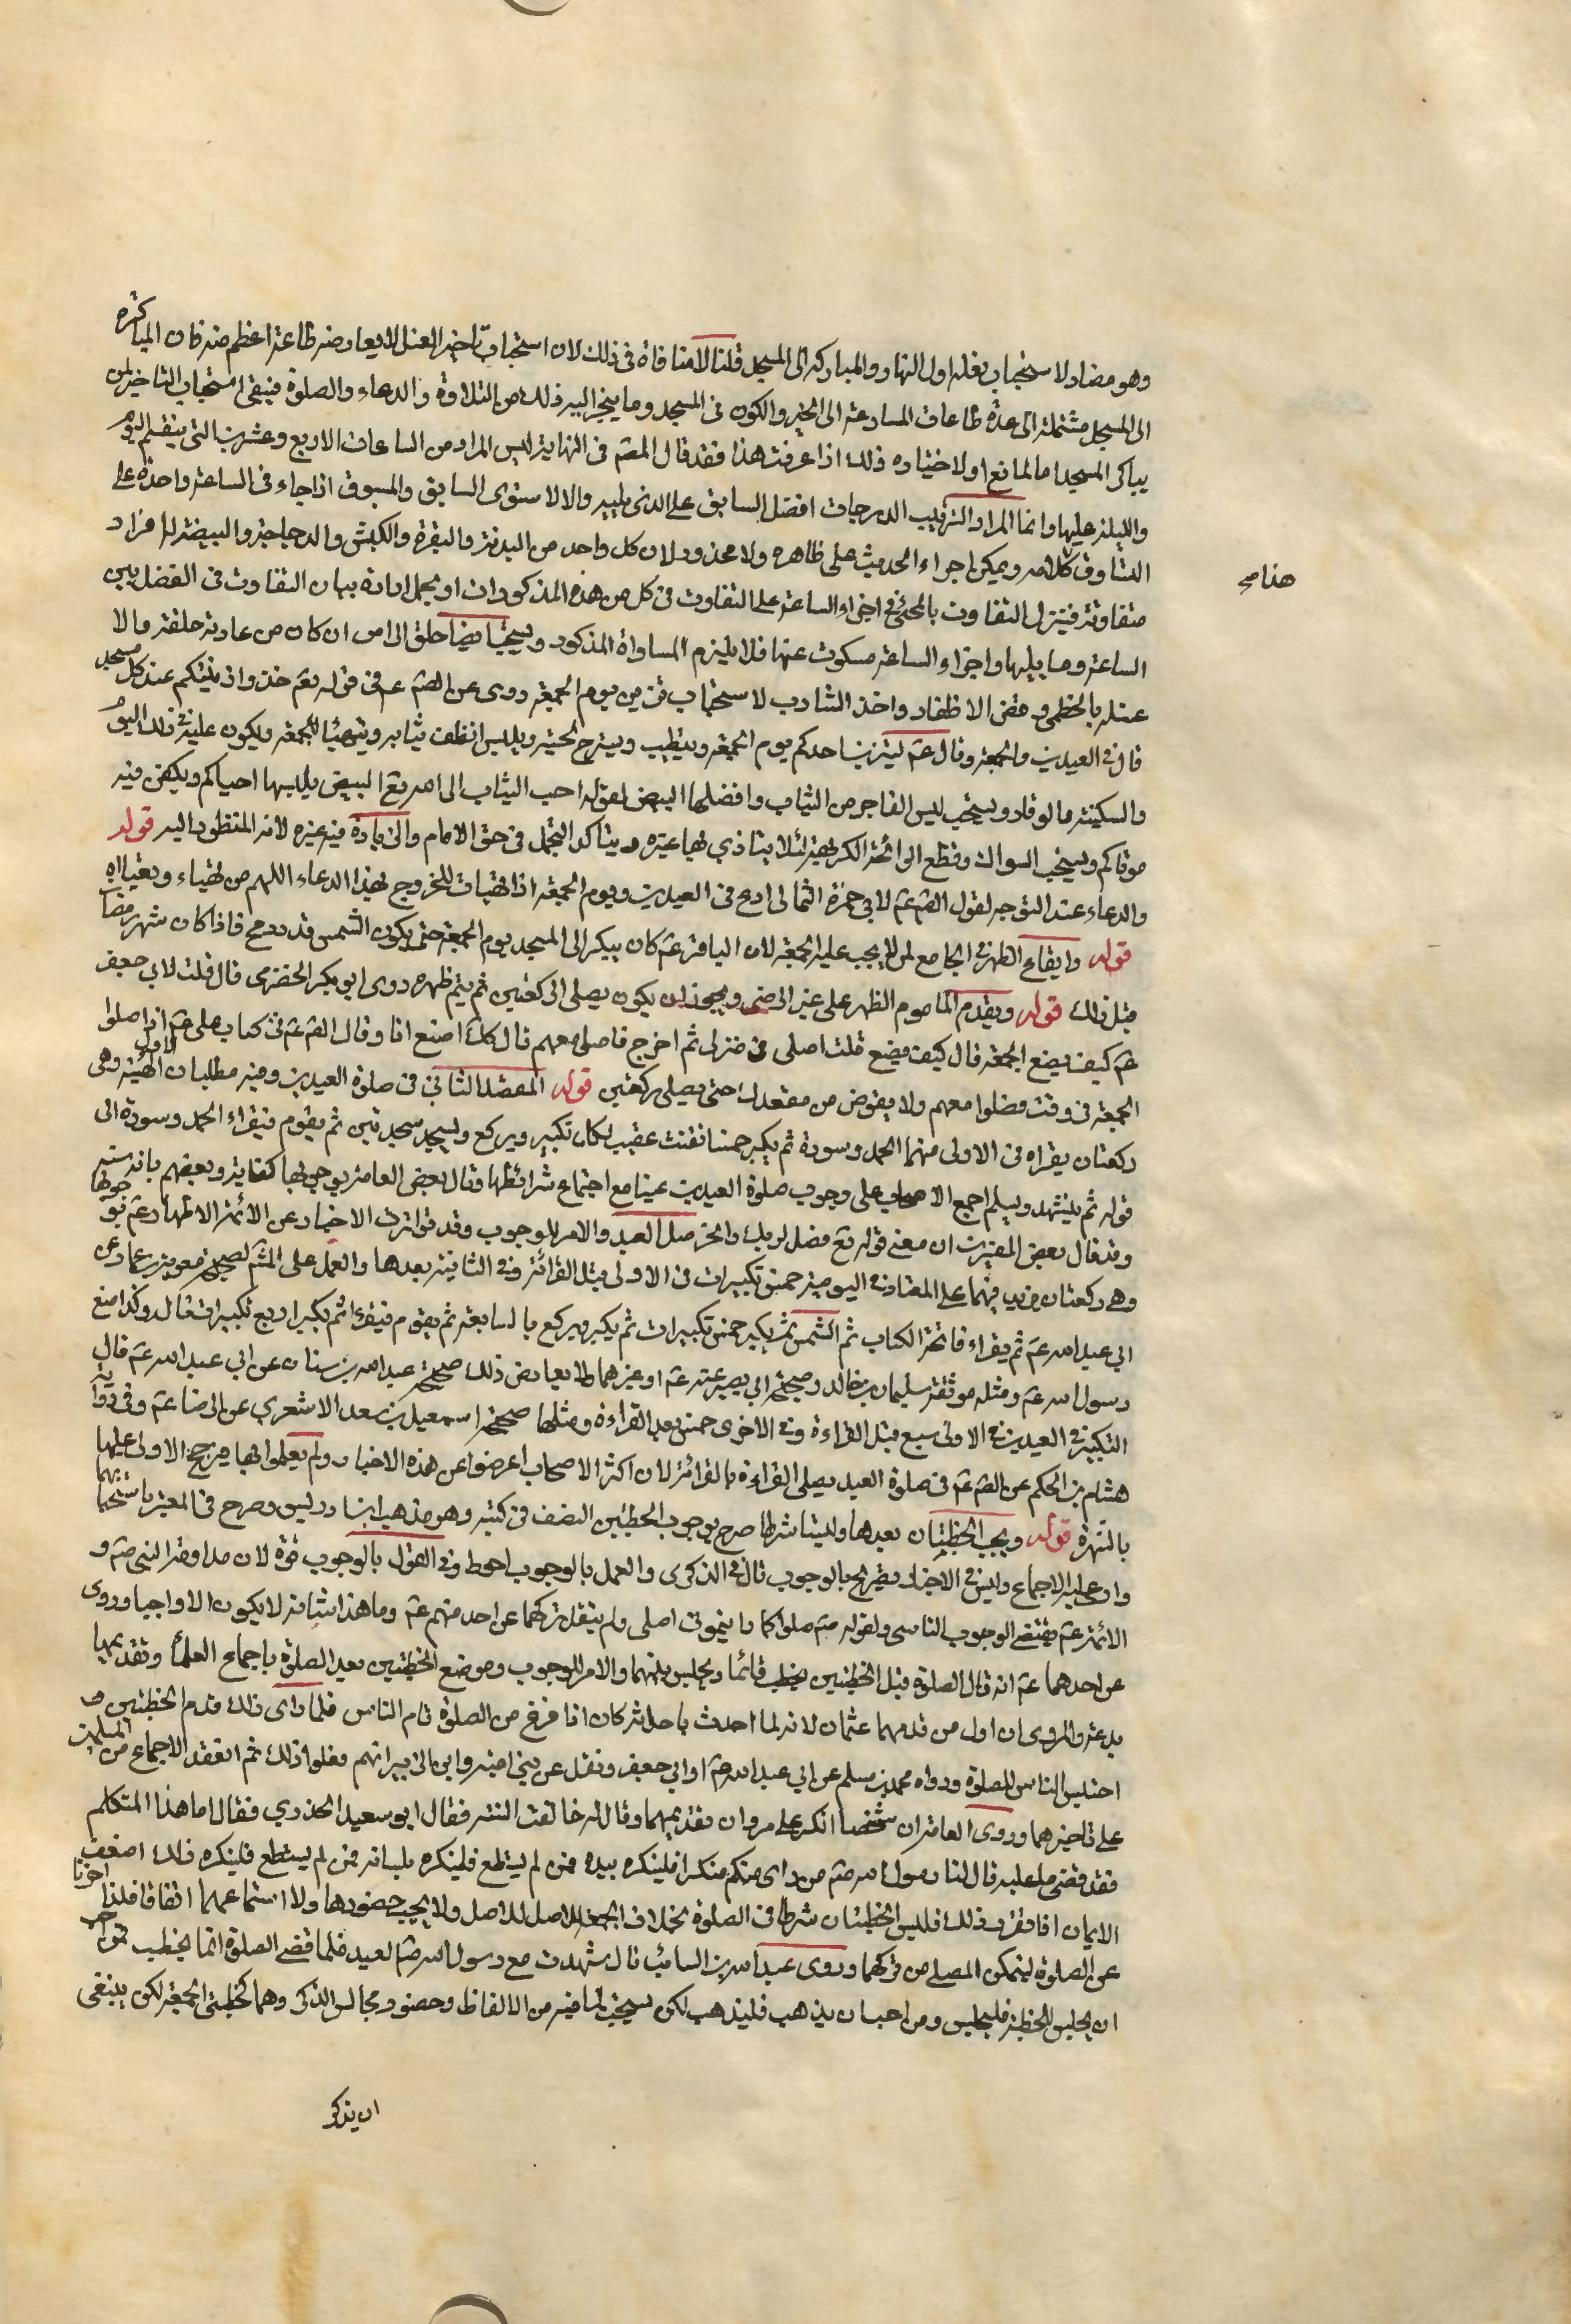 وهو مضاد لاستحباب فعله اول النهار والمباركه الى المسجد قلنا لا منافاة فى ذلك لان استحباب تاخير الغسل لا يعارضه طاعة اعظم منه فان المباكرة
الى المسجد مشتملة الى عدة طاعات المسارعة الى الخير والكون فى المسجد وما ينجر اليه ذلك من التلاوة والدعاء والصلوة فيبقى استحباب التاخير لمن
يباكر المسجد اما لمانع او لاختياره ذلك اذا عرفت هذا فقد قال المصّ فى النهاية ليس المراد من الساعات الاربع وعشرين التى ينقسم اليوم
والليلة عليها وانما المراد الترتيب الدرجات افضل السابق على الذى يليه والا لاستوى السابق والمسبوق اذا جاء فى الساعة واحدة على
التساوق كلامه ويمكن اجراء الحديث على ظاهره ولا محذور لان كل واحد من البدنة والبقرة والكبش والدجاجة والبيضة لها افراد
هذا صح
متفاوتة فينزل التفاوت بالمجئ فى اجزاء الساعة على التفاوت فى كل من هذه المذكورات او يحمل ارادة بيان التفاوت فى الفضل بين
الساعة وما يليها واجزاء الساعة مسكوت عنها فلا يلزم المساواة المذكور ويستحب ايضا حلق الراس ان كان من عادته حلقه والا
غسله بالخطمى وقص الاظفار واخذ الشارب لاستحباب يوم الجمعة روى عن الصّ عم فى قوله تعّ خذوا زينتكم عند كل مسجد
قال فى العيدين والجمعة وقال عم ليتزين احدكم يوم الجمعة ويتطيب ويسرح لحيته ويلبس انظف ثيابه ويتهيئا للجمعة ويكون عليه فى ذلك اليوم
والسكينة والوقار ويستحب لبس الفاخر من الثياب وافضلها البيض لقوله احب الثياب الى الله تعّ البيض يلبسها احياكم ويكفن فيه
موتاكم ويستحب السواك وقطع الرائحة الكريهة لئلا يتاذي بها غيره ويتاكد التجمل فى حق الامام والزيادة فيه غيره لانه المنظور اليه قوله
والدعاء عند التوجه لقول الصّ عم لابى حمزة الثمالى ادع فى العيدين ويوم الجمعة اذا تهيات للخروج بهذا الدعاء اللهم من تهيا وتعبا اه
قوله وايقاع الظهر فى الجامع لمن لا يجب عليه الجمعة لان الباقر عم كان يبكر الى المسجد يوم الجمعة حين يكون الشمس قدر رمح فاذا كان شهر رمضان
مثل ذلك قوله ويقدم الماموم الظهر على غير المرضى ويجوز ان يكون يصلى الركعتين ثم يتم ظهره روى ابو بكر الحضرمى قال قلت لابى جعفر
عم كيف يصنع الجمعة قال كيف تصنع قلت اصلى فى منزلى ثم اخرج فاصلى معهم قال كذلك اصنع انا وقال الصّ عم فى كتاب على عم اذا صلوا
الجمعة فى وقت فصلوا معهم ولا يقومن من مقعدك حتى يصلى ركعتين قوله المقصد الثانى فى صلوة العيدين وفيه مطلبان الاول الهيئة وهى
ركعتان يقراء فى الاولى منهما الحمد وسورة ثم يكبر خمسا يقنت عقيب كل تكبير ويركع ويسجد سجدتين ثم يقوم فيقراء الحمد وسورة الى
قوله ثم يتشهد ويسلم اجمع الاصحاب على وجوب صلوة العيدين عينا مع اجتماع شرائطها وقال بعض العامة بوجوبها كفاية وبعضهم بانه سنة
وقد قال بعض المفسرين ان معنى قوله تع فصل لربك وانحر صل العيد والامر للوجوب وقد تواترت الاخبار عن الائمة الاطهار عم بوجوبها
وهى ركعتان يزيد فيهما على المعتاد فى اليومية خمس تكبيرات فى الاولى قبل القرائة وفى الثانية بعدها والعمل على المشّ لصحيحة معوية بن عمار عن
ابى عبد الله عم ثم يقراء فاتحة الكتاب ثم الشمس ثم يكبر خمس تكبيرات ثم يكبر ويركع بالسابعة ثم يقوم فيقرا ثم يكبر اربع تكبيرات قال وكذا صنع
رسول الله عم ومثله موثقة سليمان بن خالد وصحيحة ابى بصير عنه عم او غيرهما ولا يعارض ذلك صحيحة عبد الله بن سنان عن ابى عبد الله عم قال
التكبير فى العيدين فى الاولى سبع قبل القراءة وفى الاخرى خمس بعد القراءة ومثلها صحيحة اسمعيل بن سعد الاشعري عن الرضا عم وفى رواية
هشام بن الحكم عن الصّ عم فى صلوة العيد يصلى القراءة بالقرائة لان اكثر الاصحاب اعرضوا عن هذه الاخبار ولم يعملوا بها فيرجح الاولى عليها
بالشهرة قوله ويجب الخطبتان بعدها وليستا شرطا صرح بوجوب الخطبتين المصنف فى كتبه وهو مذهب ابن ادريس وصرح فى المعتبر باستحبابهما
وادعى عليه الاجماع وليس فى الاخبار تصريح بالوجوب قال فى الذكرى والعمل بالوجوب احوط وفى القول بالوجوب قوة لان مداومة النبى صم و
الائمة عم مقتضى الوجوب التاسى ولقوله صم صلوا كما رايتمونى اصلى ولم ينقل تركهما عن احد منهم عم وما هذا شانه لا يكون الا واجبا وروى
عن احدهما عم انه قال الصلوة قبل الخطبتين يخطب قائما ويجلس بينهما والامر للوجوب وموضع الخطبتين بعد الصلوة باجماع العلماء وتقديمهما
بدعة والمروى ان اول من قدمهما عثمان لانه لما احدث باحداثه كان اذا فرغ من الصلوة قام الناس فلما راى ذلك قدم الخطبتين و
احتبس الناس للصلوة ورواه محمد بن مسلم عن ابى عبد الله عم او ابى جعفر ونقل عن بنى امية وابن الزبير انهم فعلوا ذلك ثم انعقد الاجماع من المسلمين
على تاخيرهما وروى العامة ان شخصا انكر على مروان تقديمهما وقال له خالفت السنة فقال ابو سعيد الخدري فقال اما هذا المتكلم
فقد قضى ما عليه قال لنا رسول الله صم من راى منكم منكرا فلينكره بيده فمن لم يستطع فلينكره بلسانه فمن لم يستطع فلينكره ذلك اضعف
الايمان اذا تقرر ذلك فليس الخطبتان شرطا فى الصلوة بخلاف الجمعة للاصل ولا يجب حضورها ولا استماعهما اتفاقا فلذا اخرتا
عن الصلوة ليتمكن المصلى من تركهما وروى عبد الله بن السائب قال شهدت مع رسول الله صم العيد فلما قضى الصلوة انما نخطب فمن احب
ان يجلس للخطبة فليجلس ومن احب ان يذهب فليذهب لكن يستحب لما فيه من الالفاظ وحضور مجالس الذكر وهما كخطبتى الجمعة لكن ينبغى
ان يذكر